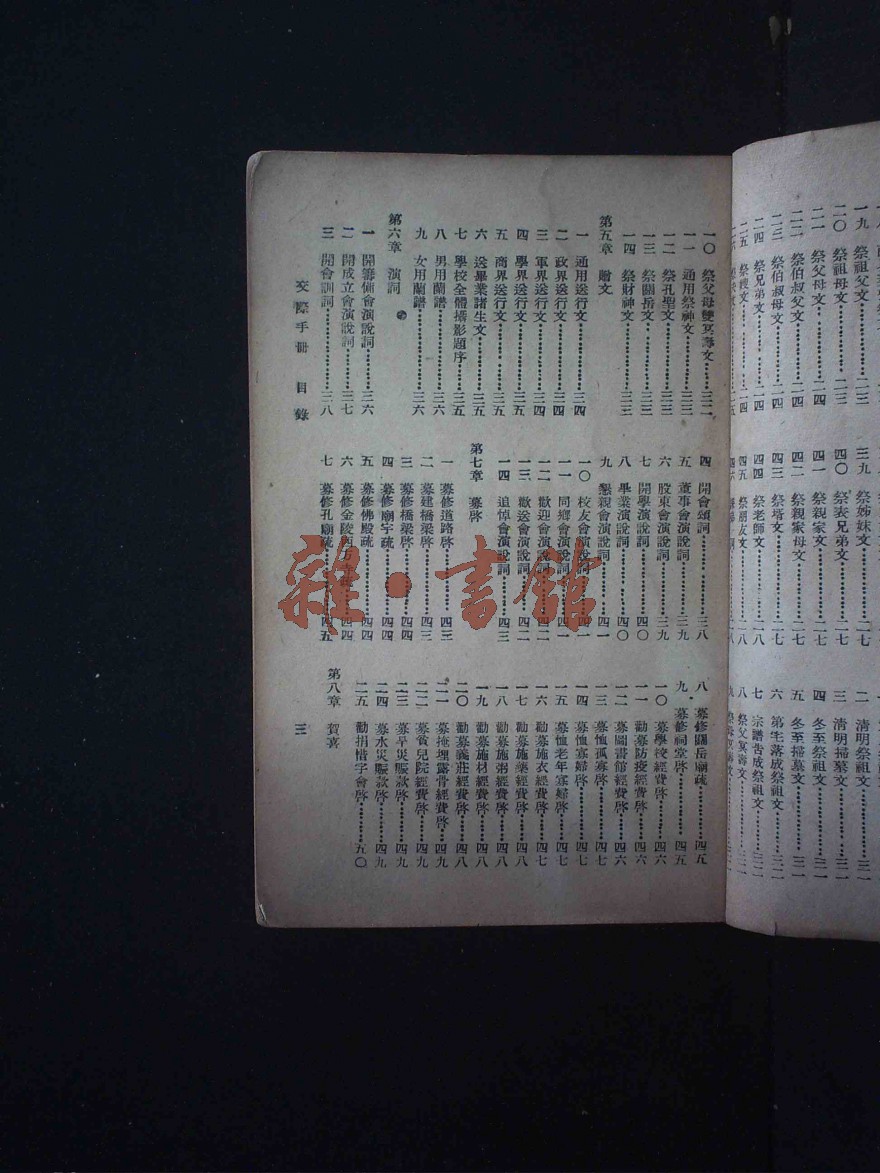 二〇 祭祖母文……二三
二一 祭父母文……二四
二二 祭伯叔父文……二四
二三 祭伯叔母文……二四
二四 祭兄弟文……二四
三九 祭姊妹文……二七
四〇 祭表兄弟文……二七
祭親家文……二七
祭親家母文……二七
祭壻文……二七
祭老師文……二八
四五 祭朋友文……二八
二 清明祭祖文
三 清明掃墓文……三一
四 冬至祭祖文……三一
五 冬至掃墓文……三一
六 第宅落成祭祖文
七 宗譜告成祭祖文……三二
八 祭父冥壽文
一〇 祭父母雙冥壽文……三二
一一 通用祭神文……三三
一二 祭孔聖文……三三
一三 祭關岳文……三三
一四 祭財神文……三三
第五章 贈文
一 通用送行文……三四
二 政界送行文……三四
三 軍界送行文……三四
四 學界送行文……三五
五 商界送行文……三五
六 送畢業諸生文……三五
七 學校全體攝影題序……三五
八 男用蘭譜……三六
九 女用蘭譜……三六
第六章 演詞
一 開籌備會演說詞……三六
二 開成立會演說詞……三七
三 開會訓詞……三八
四 開會頌詞……三八
五 董事會演說詞……三九
六 股東會演說詞……三九
七 開學演說詞……四〇
八 畢業演說詞……四〇
九 懇親會演說詞……四一
一〇 校友會演說詞……四一
一一 同鄉會演說詞……四一
一二 歡迎會演說詞……四二
一三 歡送會演說詞……四二
一四 追悼會演說詞……四三
第七章 募啓
一 募修道路啓……四三
二 募建橋梁啓……四三
三 募修橋梁啓……四四
四 募修廟宇疏……四四
五 募修佛殿疏……四四
六 募修金陵……四四
七 募修孔廟疏……四五
八 募修關岳廟疏……四五
九 募修祠堂啓……四五
一〇 募學校經費啓……四六
一一 勸募防疫經費啓……四六
一二 募圖書館經費啓……四六
一三 募恤孤寡啓……四七
一四 募恤寡婦啓……四七
一五 募恤老年寡婦啓……四七
一六 勸募施衣經費啓……四七
一七 勸募施藥經費啓……四七
一八 勸募施粥經費啓……四八
一九 勸募施材經費啓……四八
二〇 勸募義莊經費啓……四八
二一 募掩埋露骨經費啓……四九
二二 募貧兒院經費啓……四九
二三 募旱災賑款啓……四九
二四 募水災賑款啓……四九
二五 勸捐惜字會啓……五〇
第八章 賀喜
交際手冊 目錄
三
雜·書館